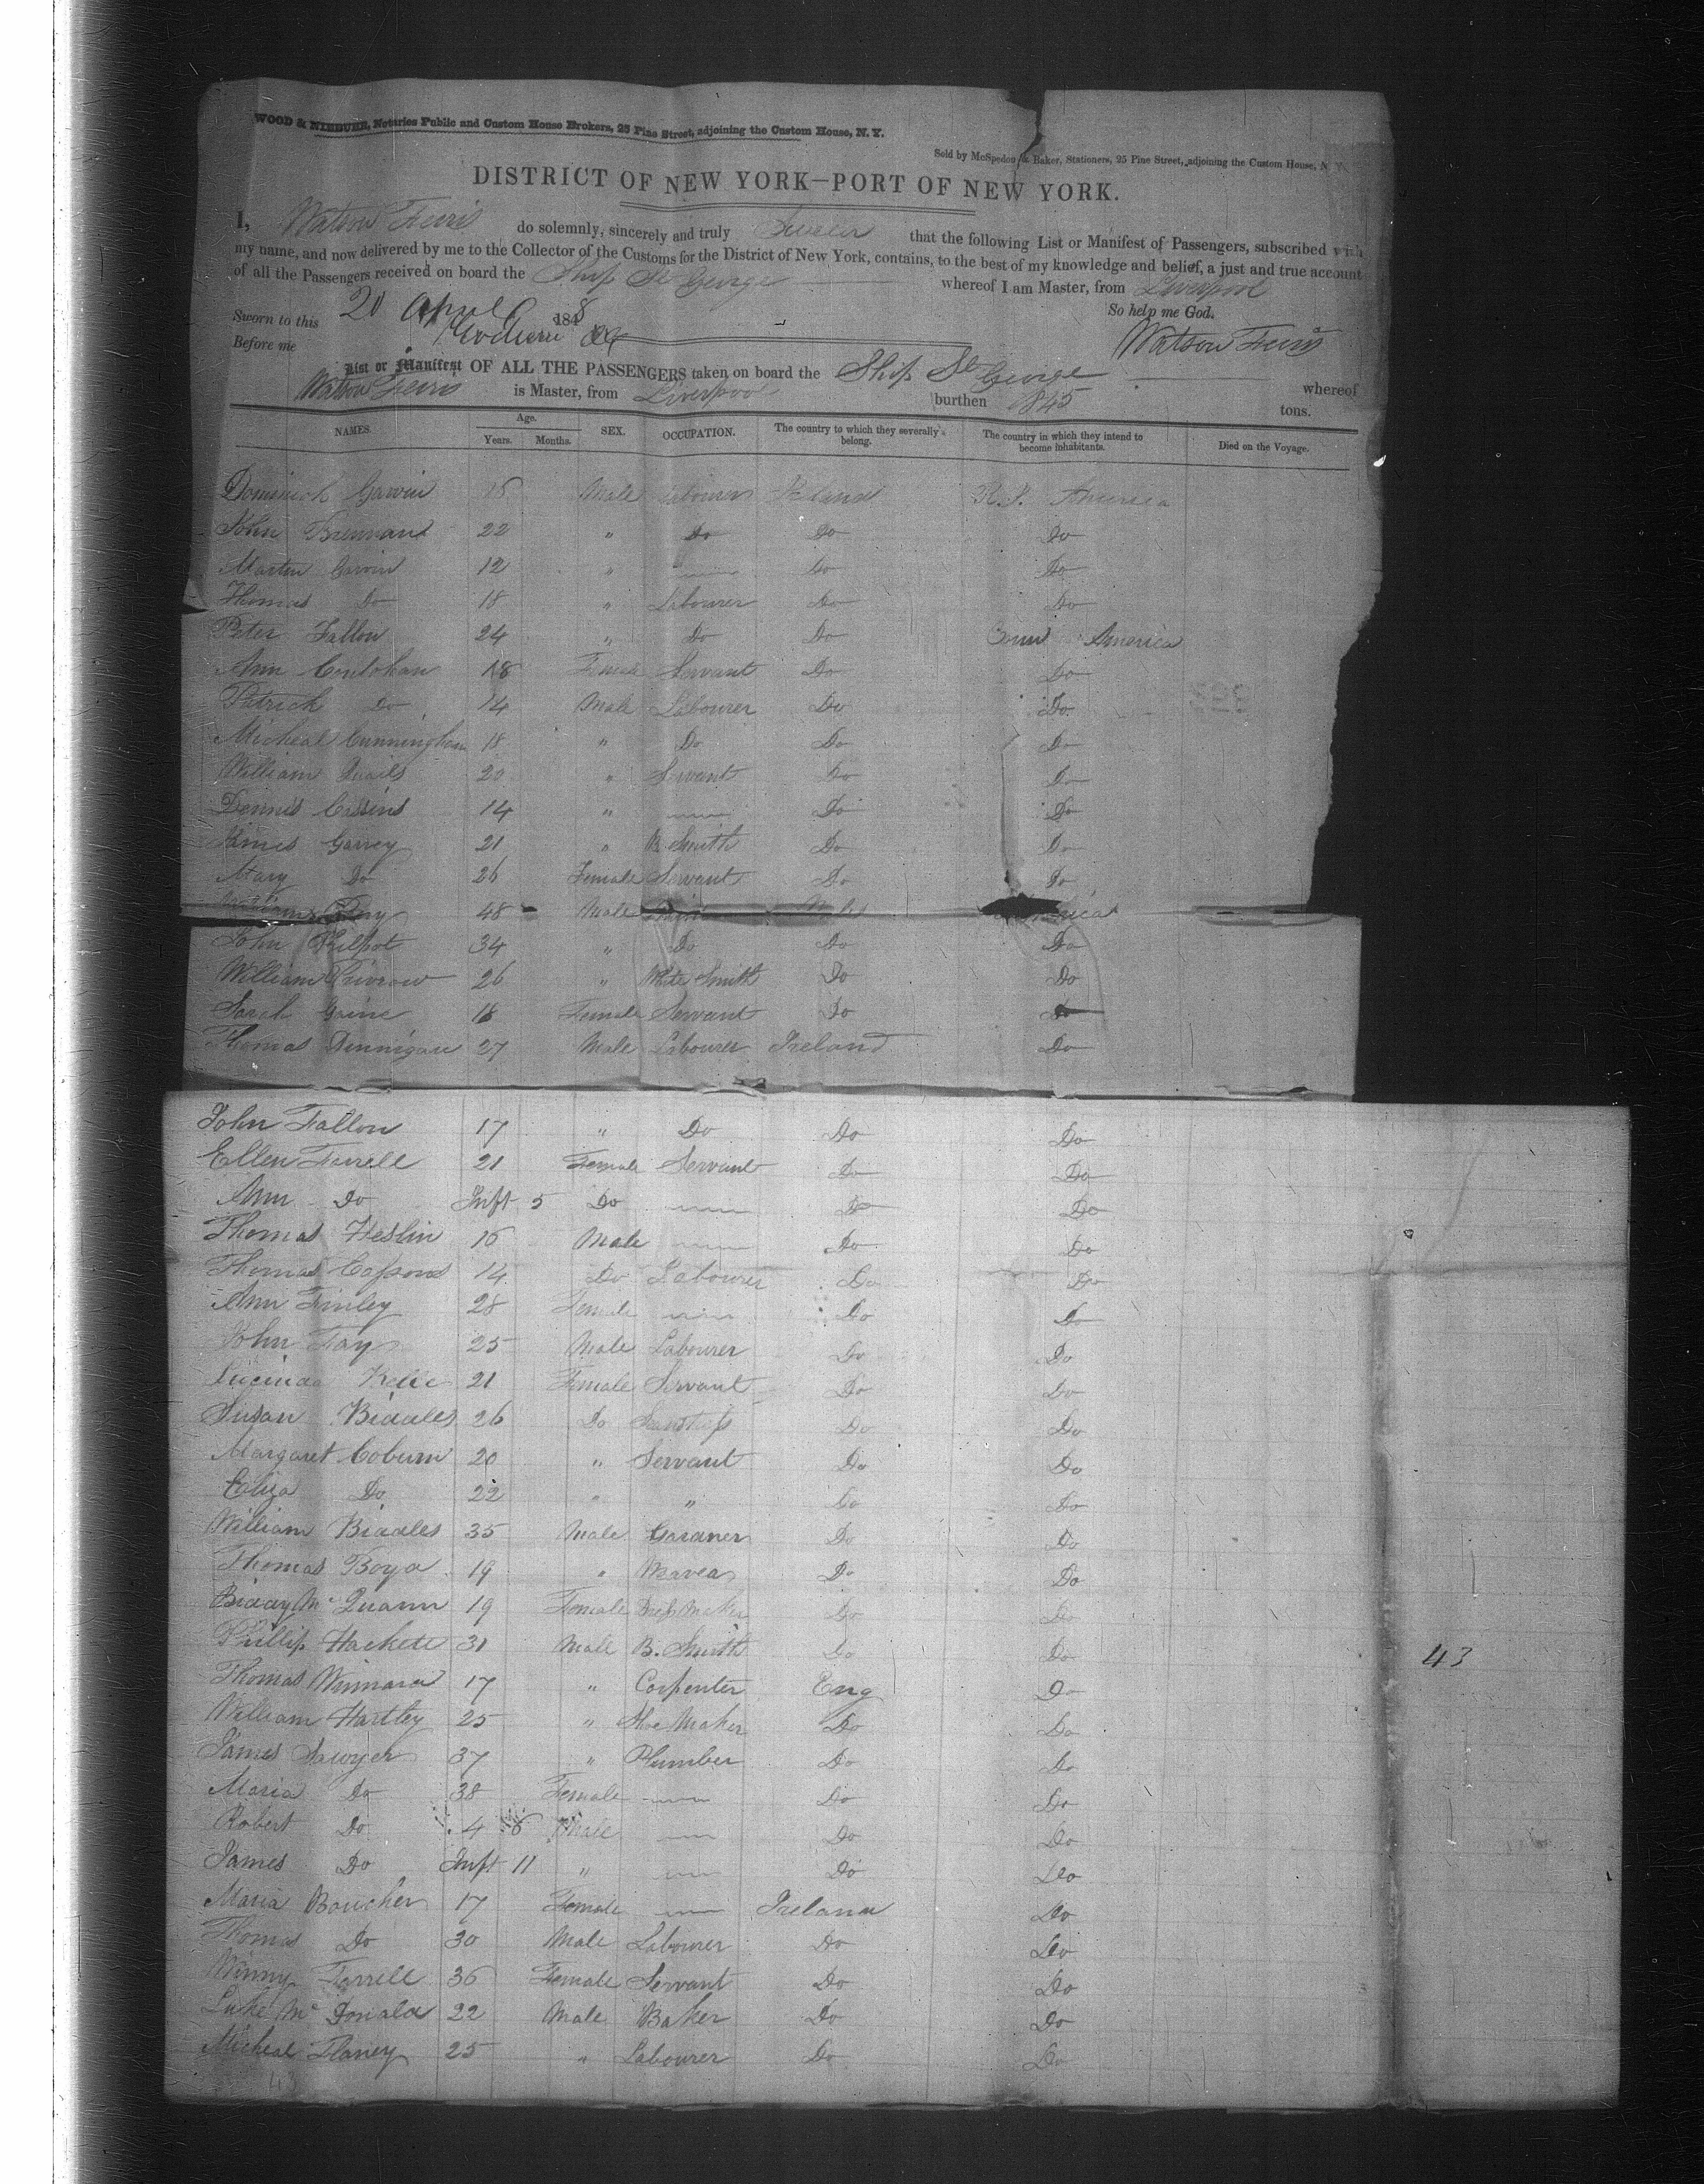 WOOD & NIEBUHR, Notaries Public and Custom House Brokers, 25 Pine Street, adjoining the Custom House, N. Y.
Sold by McSpedon & Baker, Stationers, 25 Pine Street, adjoining the Custom House, N. Y.
DISTRICT OF NEW YORK—PORT OF NEW YORK.
I, Watson Ferris do solemnly, sincerely and truly Swear that the following List or Manifest of Passengers, subscribed with
my name, and now delivered by me to the Collector of the Customs for the District of New York, contains, to the best of my knowledge and belief, a just and true account
of all the Passengers received on board the Ship St George whereof I am Master, from Liverpool
Sworn to this 20 April 1848 So help me God.
Before me Watson Ferris
List or Manifest OF ALL THE PASSENGERS taken on board the Ship St George whereof
Watson Ferris is Master, from Liverpool burthen 845 tons.
NAMES. Age. Years. Months. SEX. OCCUPATION. The country to which they severally belong. The country in which they intend to become inhabitants. Died on the Voyage.
Dominick Garvin 16 Male Labourer Ireland America
John Brennan 22 " Do Do Do
Martin Garvin 12 " Do Do
Thomas Do 18 " Labourer Do Do
Peter Fallon 24 " Do Do America
Ann 18 Female Servant Do Do
Patrick Do 14 Male Labourer Do Do
Micheal Cunningham 18 " Do Do Do
William Quails 20 " Servant Do Do
Dennis 14 " Do Do
James Garrey 21 " B. Smith Do Do
Mary Do 26 Female Servant Do Do
48 Male
John Philpot 34 " Do Do Do
William 26 " White Smith Do Do
Sarah 18 Female Servant Do Do
Thomas Dennigan 27 Male Labourer Ireland Do
John Fallon 17 " Do Do Do
Ellen Farrell 21 Female Servant Do Do
Ann Do Inft 5 Do Do Do
Thomas Heslin 16 Male Do Do
Thomas 14 Do Labourer Do Do
Ann Finley 28 Female Do Do
John Fay 25 Male Labourer Do Do
Lucinda 21 Female Servant Do Do
Susan Biddles 26 Do Do Do
Margaret Coburn 20 " Servant Do Do
Eliza Do 22 " " Do Do
William Biddles 35 Male Gardner Do Do
Thomas Boyd 19 " Do Do
Biddy Mc Quann 19 Female Dress Maker Do Do
Phillip Hackett 31 Male B. Smith Do Do
Thomas Winnard 17 " Carpenter Eng Do
William Hartley 25 " Shoe Maker Do Do
James Sawyer 37 " Plumber Do Do
Maria Do 38 Female Do Do
Robert Do 4 6 Male Do Do
James Do Inft 11 " Do Do
Maria Boucher 17 Female Ireland Do
Thomas Do 30 Male Labourer Do Do
Winny Farrell 36 Female Servant Do Do
Luke Mc Donald 22 Male Baker Do Do
Micheal Flaney 25 " Labourer Do Do
43
43